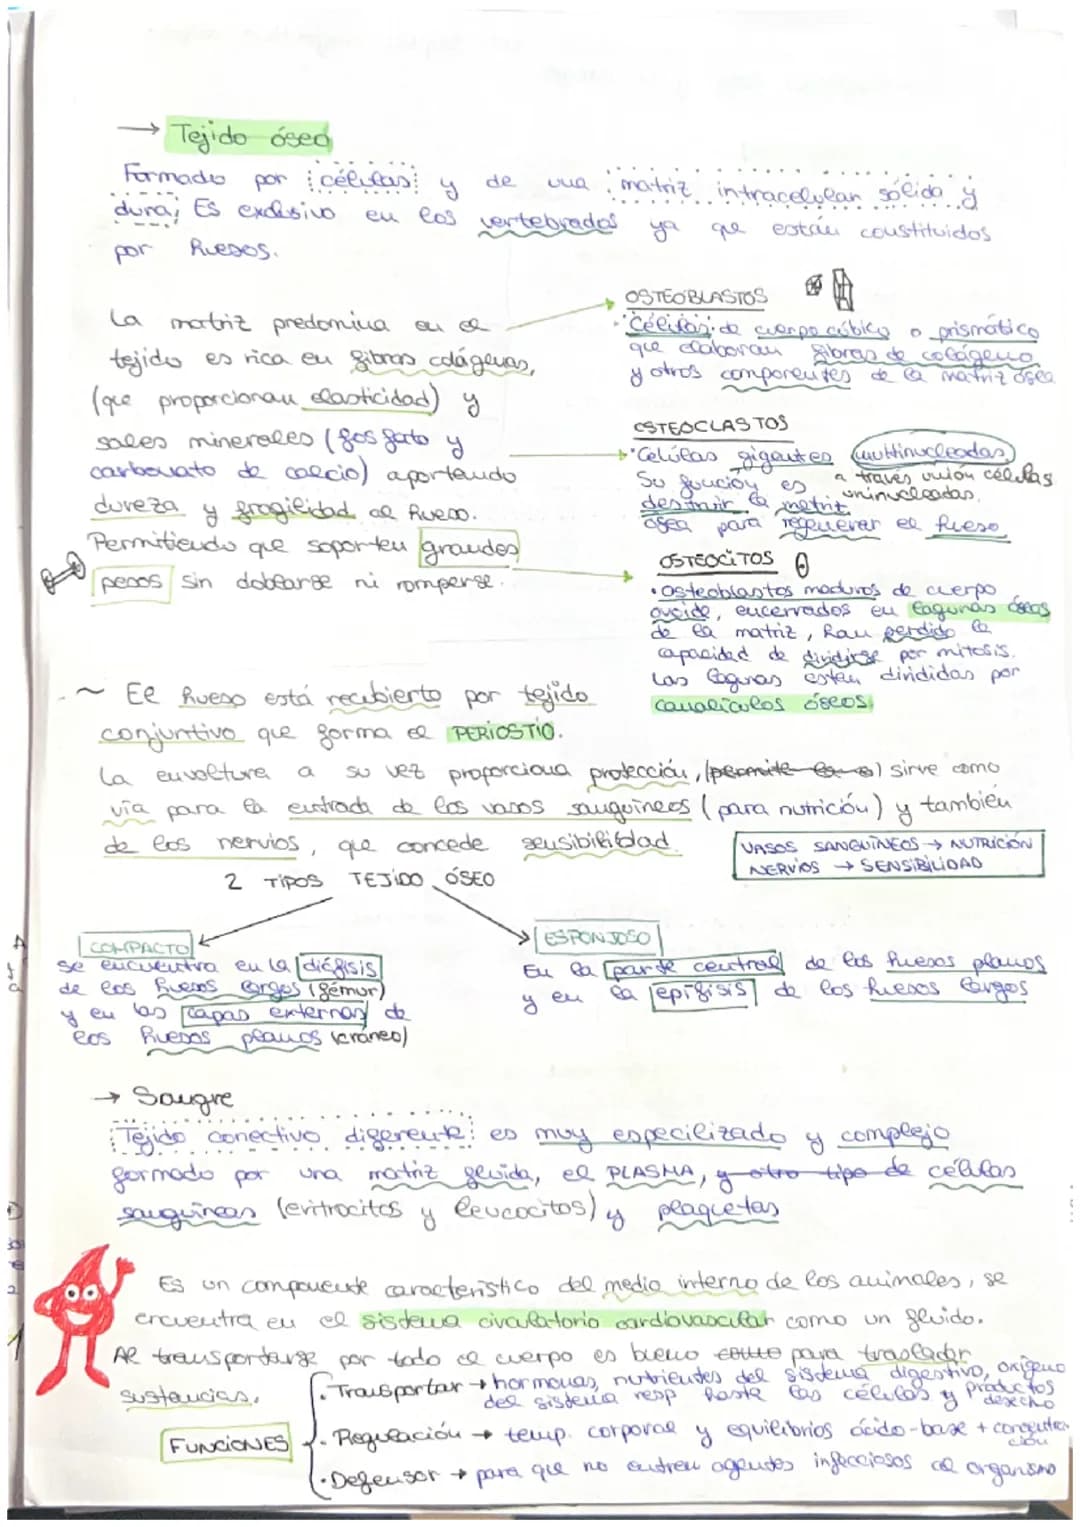 → Tejido óseo
Formado por células y de una matriz intracelular sólida y
dura; Es exclusivo en los vertebrados ya que están constituidos
por huesos.
La matriz predomina en el
tejido es rica en fibras colágenas,
(que proporcionan elasticidad) y
sales minerales (fosfato y
carbonato de calcio) aportando
dureza y fragilidad al hueso.
Permitiendo que soporten grandes
pesos sin doblarse ni romperse.
OSTEOBLASTOS
·Células de cuerpo cúbico o prismático
que elaboran fibras de colágeno
y otros componentes de la matriz ósea
OSTEOCLASTOS
·Células gigantes multinucleadas
a través unión células
uninucleadas.
Su función es
destruir la matriz
ósea para regenerar el hueso
OSTEOCITOS
·Osteoblastos maduros de cuerpo
ovoide, encerrados en lagunas óseas
de la matriz, han perdido la
capacidad de dividirse por mitosis.
Las lagunas están divididas por
canalículos óseos.
~ El hueso está recubierto por tejido
conjuntivo que forma el PERIOSTIO.
La envoltura a su vez proporciona protección, (permite la a) sirve como
vía para la entrada de los vasos sanguíneos (para nutrición) y también
de los nervios, que concede sensibilidad.
VASOS SANGUÍNEOS → NUTRICIÓN
NERVIOS → SENSIBILIDAD
2 TIPOS TEJIDO ÓSEO
COMPACTO
se encuentra en la diáfisis
de los huesos largos (fémur)
y en las capas externas de
los huesos planos (cráneo)
ESPONJOSO
En la parte central de los huesos planos
y en la epífisis de los huesos largos
→ Sangre
Tejido conectivo diferente: es muy especilizado y complejo
formado por una matriz fluida, el PLASMA, y otro tipo de células
sanguíneas (eritrocitos y leucocitos) y plaquetas
Es un componente característico del medio interno de los animales, se
encuentra en el sistema circulatorio cardiovascular como un fluido.
Al transportarse por todo el cuerpo es bueno como para trasladar
sustancias.
FUNCIONES
· Transportar → hormonas, nutrientes del sistema digestivo, oxígeno
del sistema resp hasta las células y productos
desecho
· Regulación → temp. corporal y equilibrios ácido-base + concentra
ción
· Defensor → para que no entren agentes infecciosos al organismo